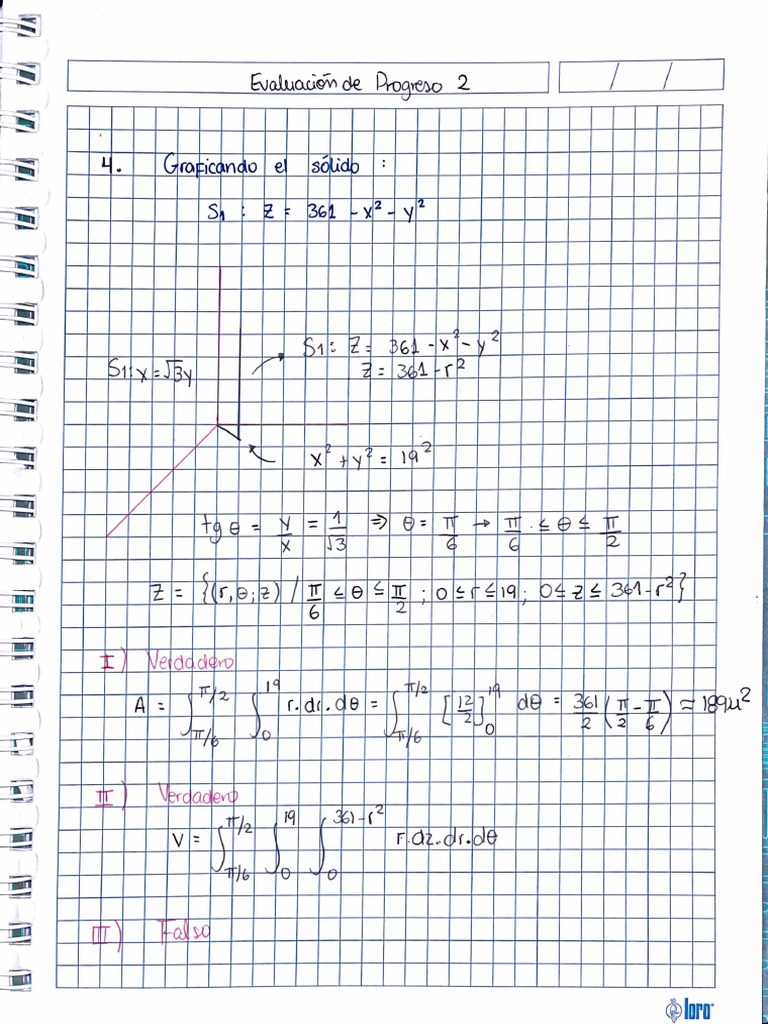 Evaluación de Progreso 2
/ /
4. Graficando el sólido :
S₁ : Z = 361 - x² - y²
S1: Z = 361 - x² - y²
Z = 361 - r²
S1: x = √3y
x² + y² = 19²
tg θ = y/x = 1/√3 ⇒ θ = π/6 → π/6 ≤ θ ≤ π/2
Z = {(r, θ; z) / π/6 ≤ θ ≤ π/2 ; 0 ≤ r ≤ 19; 0 ≤ z ≤ 361 - r²}
I) Verdadero
A = ∫_{π/6}^{π/2} ∫_0^{19} r.dr.dθ = ∫_{π/6}^{π/2} [12/2]_0^{19} dθ = 361/2 (π/2 - π/6) ≈ 189μ²
II) Verdadero
V = ∫_{π/6}^{π/2} ∫_0^{19} ∫_0^{361-r²} r.dz.dr.dθ
III) Falso
loro